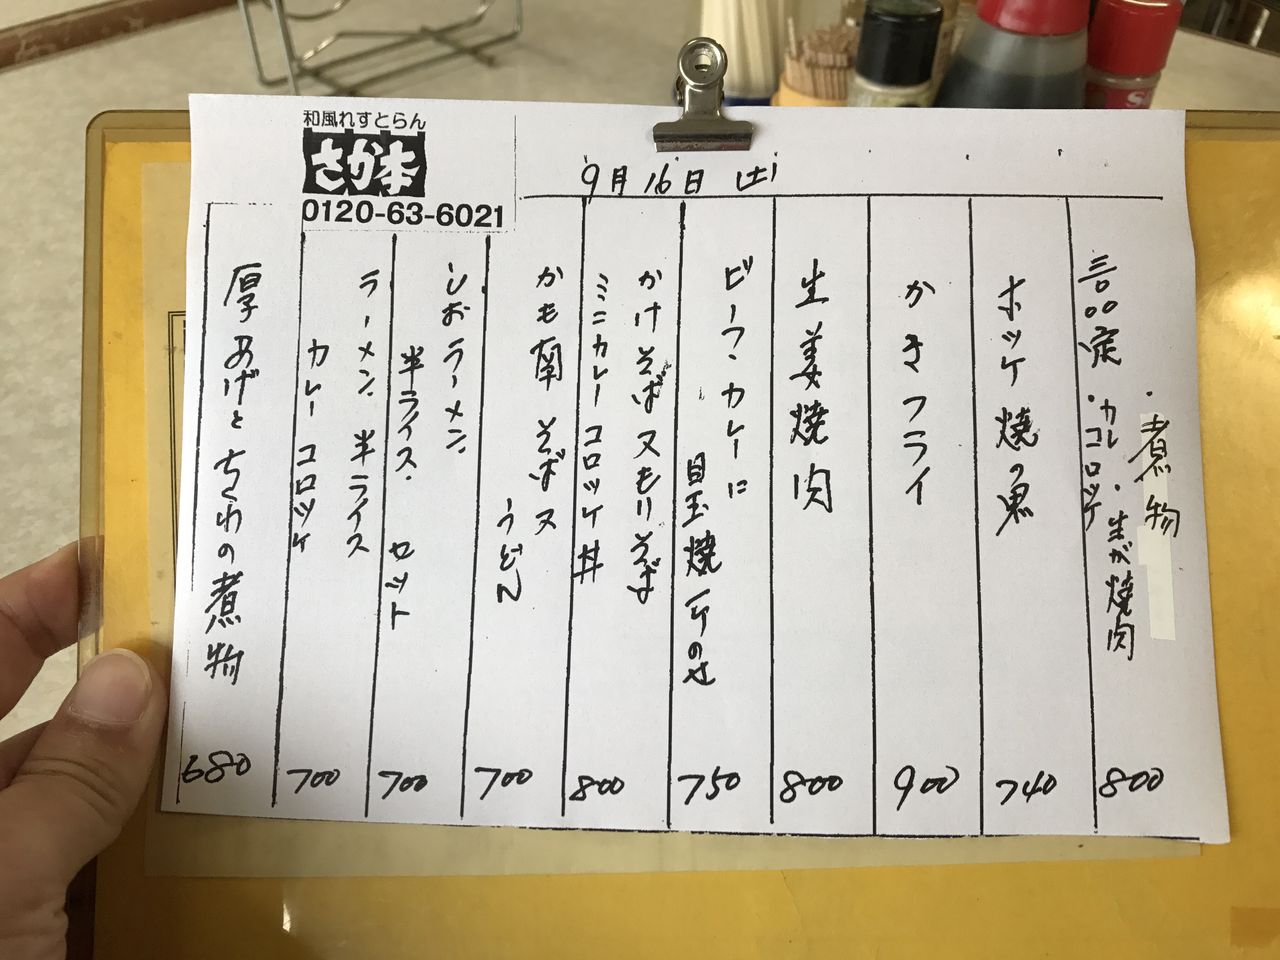 和風れすとらん
さか本
0120-63-6021
9月16日(土)
三品定
・煮物
・カレーコロッケ
・生が焼肉
800
ホッケ焼魚
740
かきフライ
900
生姜焼肉
800
ビーフ・カレーに
目玉焼一ケのせ
750
かけそば又もりそば
ミニカレーコロッケ丼
800
かも南そば又
うどん
700
しおラーメン
半ライス・セット
700
ラーメン 半ライス
カレーコロッケ
700
厚あげとちくわの煮物
680